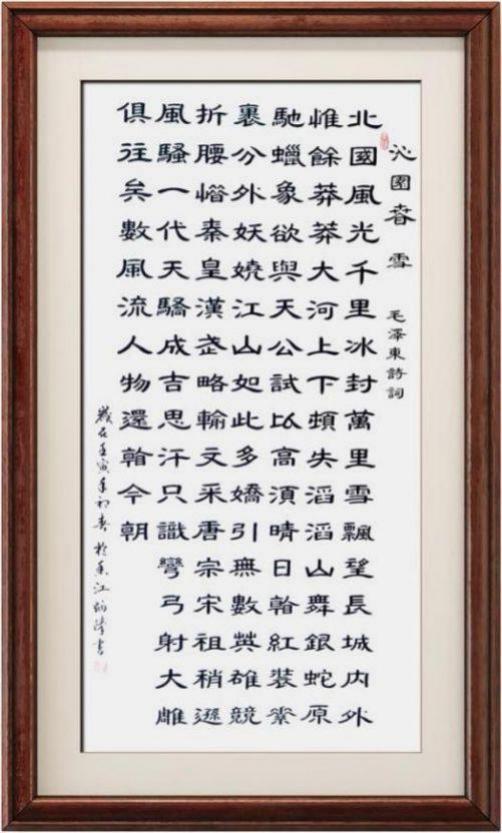 沁園春 雪 毛澤東詩詞
北國風光千里冰封萬里雪飄望長城內外
惟餘莽莽大河上下頓失滔滔山舞銀蛇原
馳蠟象欲與天公試比高須晴日看紅裝素
裹分外妖嬈江山如此多嬌引無數英雄競
折腰惜秦皇漢武略輸文采唐宗宋祖稍遜
風騷一代天驕成吉思汗只識彎弓射大雕
俱往矣數風流人物還看今朝
歲在壬寅年初春於香江書